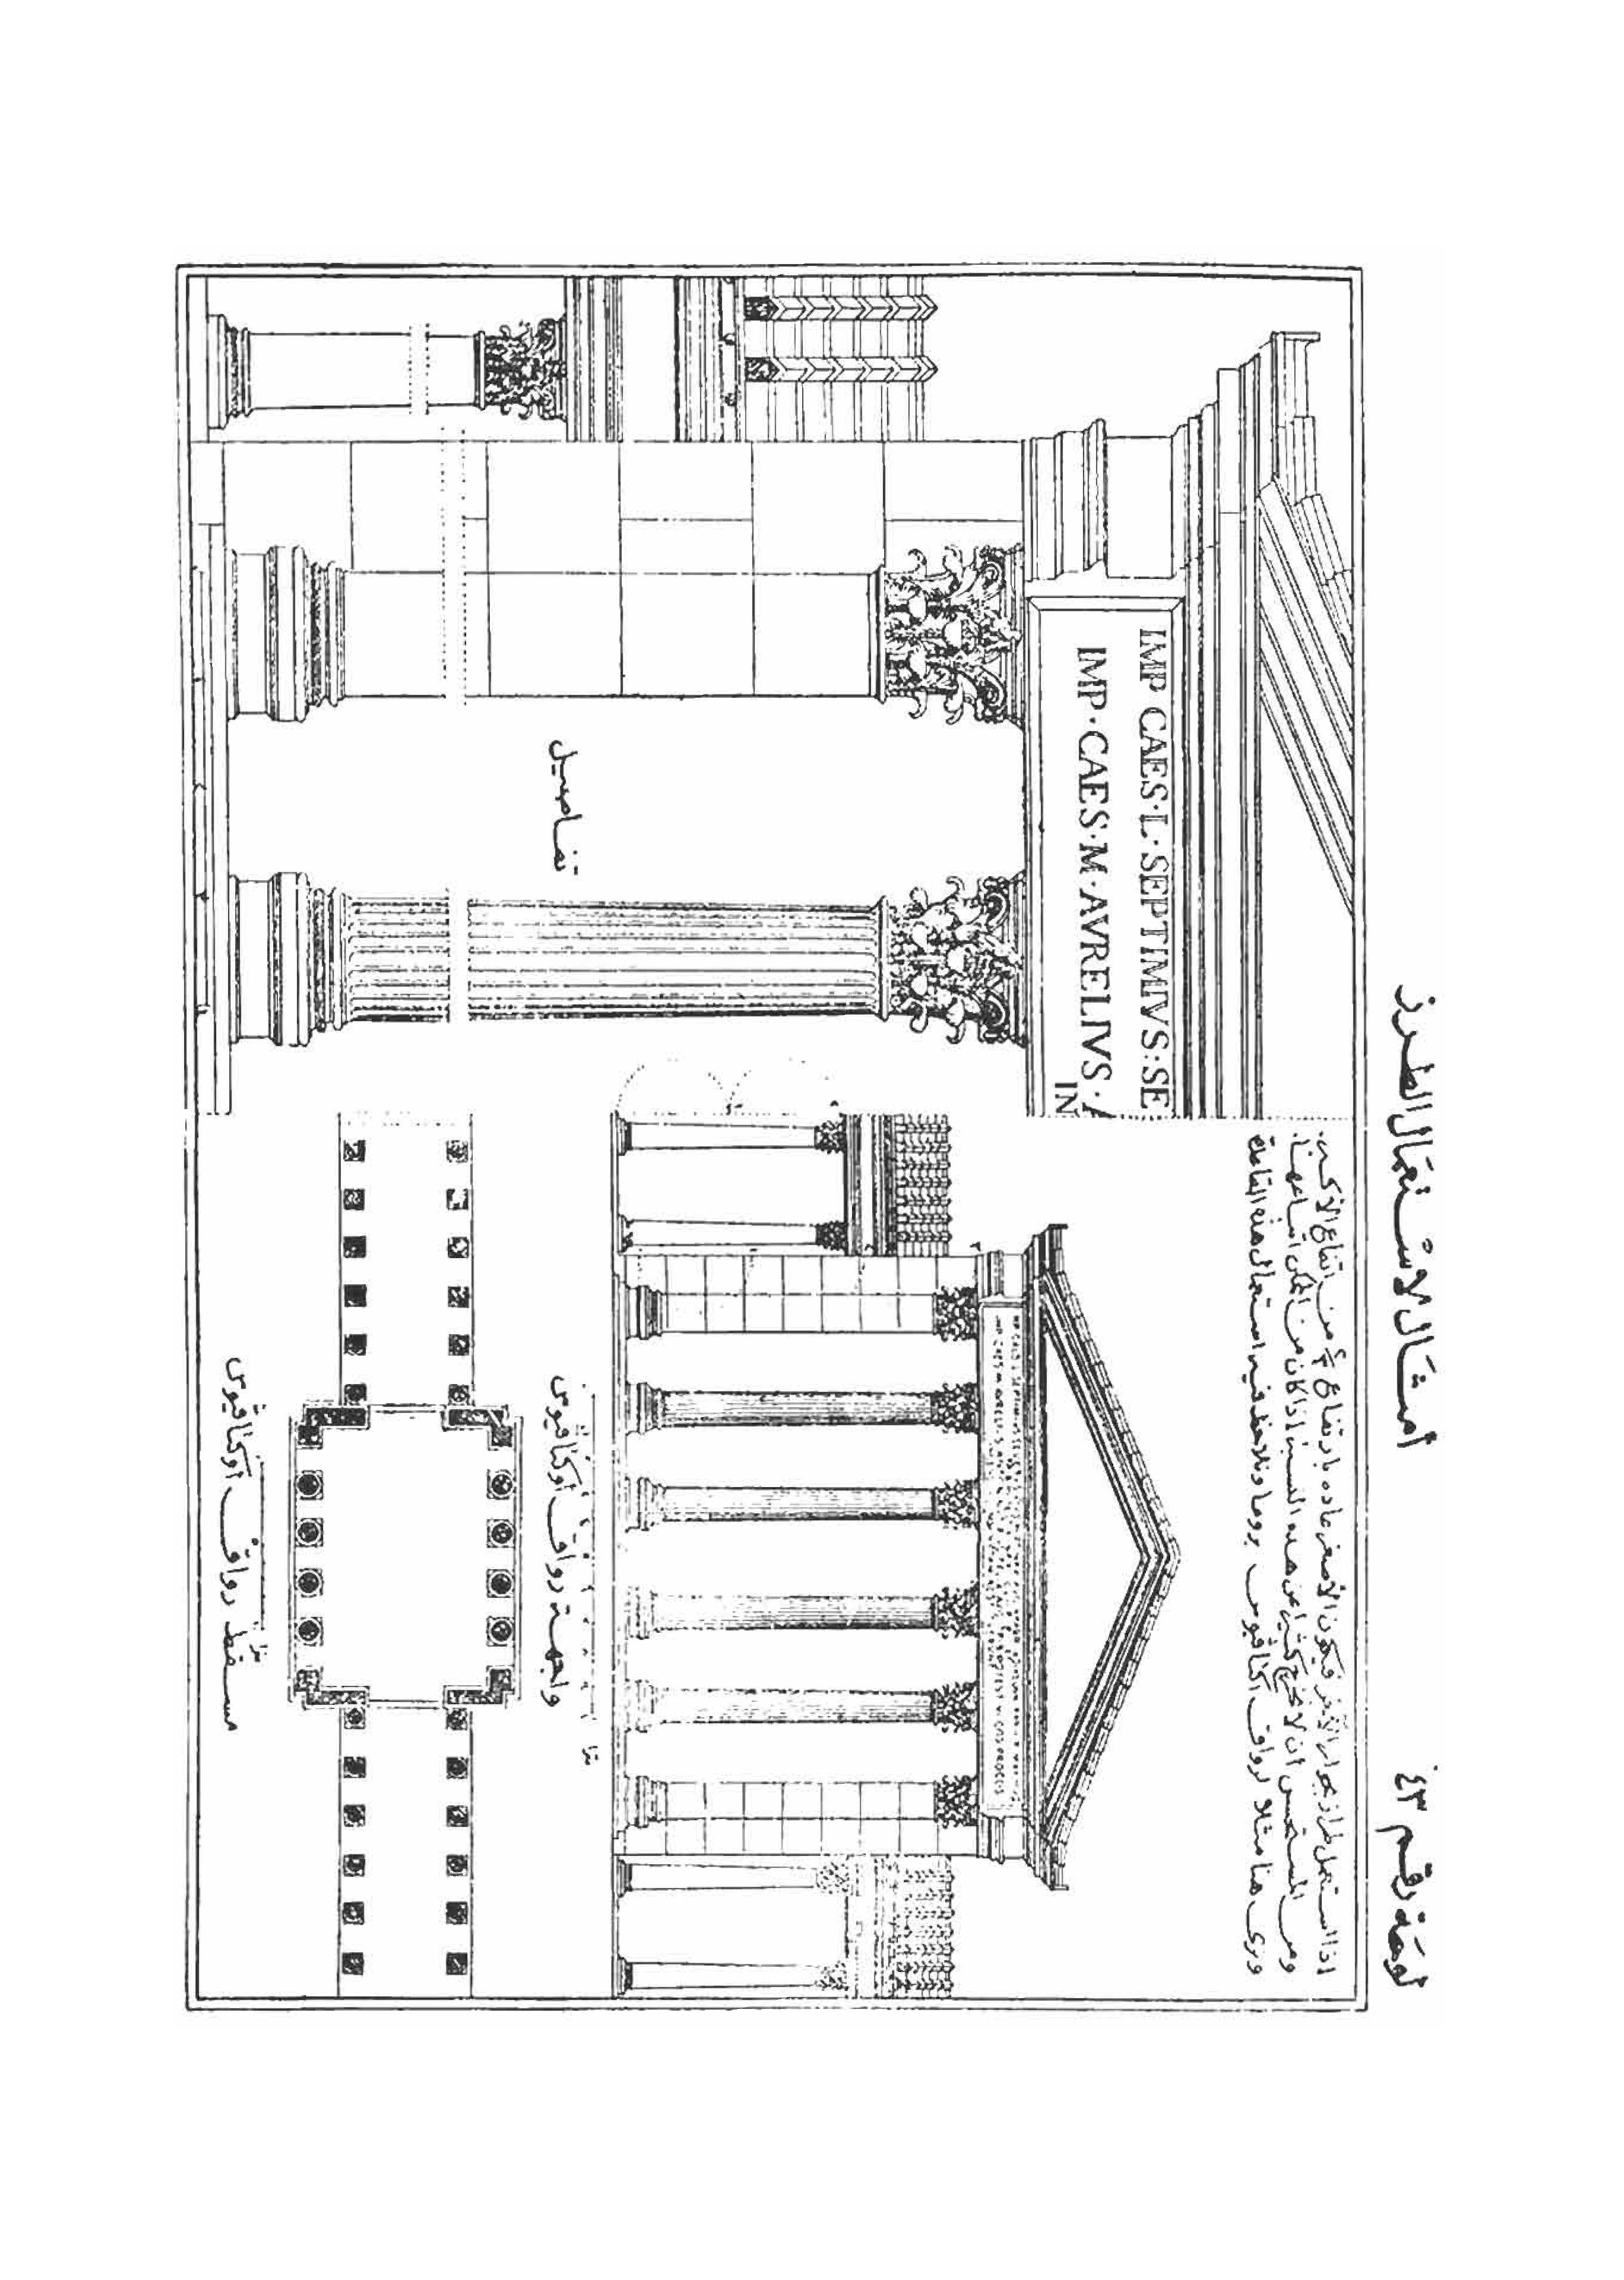 لوحة رقم ٤٣
أمثال لاستعمال الطرز
اذا استعمل طراز بجوار الآخر فيكون الأصغر عاده بارتفاع من ارتفاع الأكبر.
ومن المستحسن ان لا نخرج كثيرا عن هذه النسب اذا كان من الممكن اتباعها.
ونرى هنا مثلا لرواق اكتافيوس بروما ونلاحظ فيه استعمال هذه القاعدة
IMP CAES·L·SEPTIMIVS·SE
IMP·CAES·M·AVRELIVS·A
IN
تفاصيل
واجهة رواق اوكتافيوس
مسقط رواق اوكتافيوس